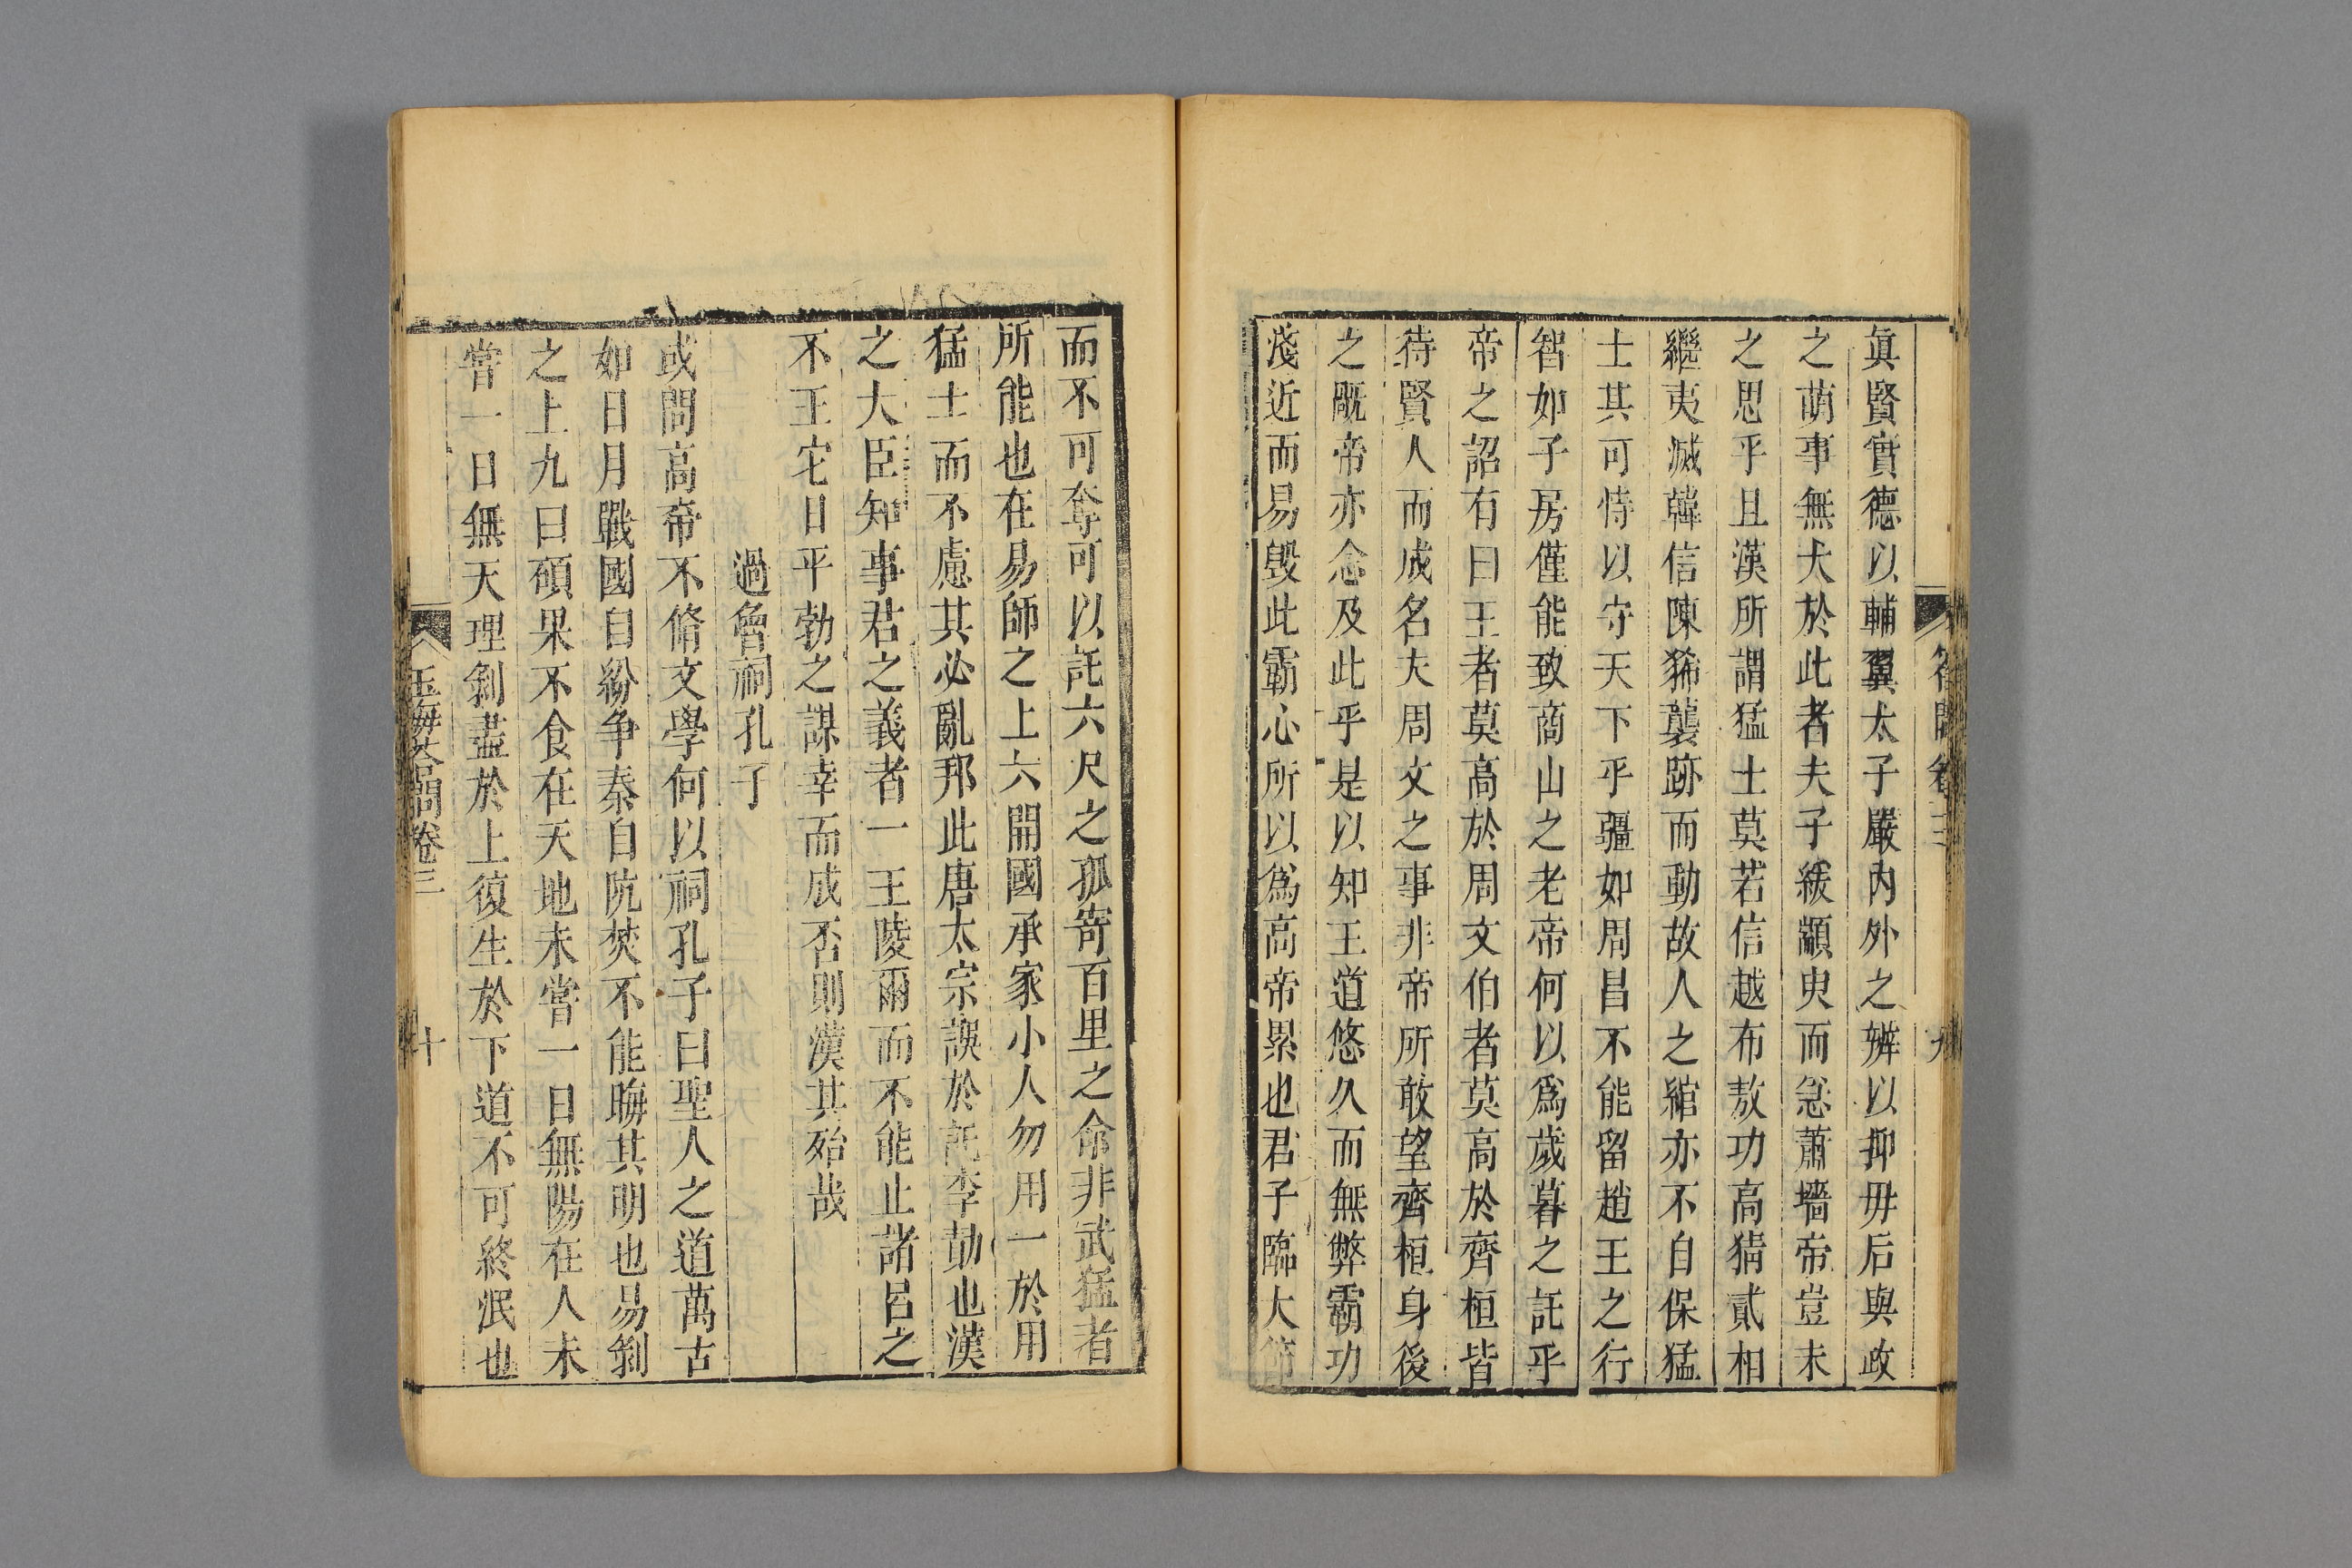 答問卷三
九
眞賢實德以輔翼太子嚴內外之辨以抑毋后與政
之萌事無大於此者夫子緩顓臾而急蕭墻帝豈未
之思乎且漢所謂猛士莫若信越布敖功高猜貳相
繼夷滅韓信陳豨襲跡而動故人之綰亦不自保猛
士其可恃以守天下乎疆如周昌不能留趙王之行
智如子房僅能致商山之老帝何以爲歲暮之託乎
帝之詔有曰王者莫高於周文伯者莫高於齊桓皆
待賢人而成名夫周文之事非帝所敢望齊桓身後
之厩帝亦念及此乎是以知王道悠久而無弊霸功
淺近而易毀此霸心所以爲高帝累也君子臨大節
而不可奪可以託六尺之孤寄百里之命非武猛者
所能也在易師之上六開國承家小人勿用一於用
猛士而不慮其必亂邦此唐太宗誤於託李勣也漢
之大臣知事君之義者一王陵爾而不能止諸呂之
不王它日平勃之謀幸而成否則漢其殆哉
過魯祠孔子
或問高帝不脩文學何以祠孔子曰聖人之道萬古
如日月戰國自紛爭秦自阬焚不能晦其明也易剝
之上九曰碩果不食在天地未嘗一日無陽在人未
嘗一日無天理剝盡於上復生於下道不可終泯也
玉海答問卷三
十